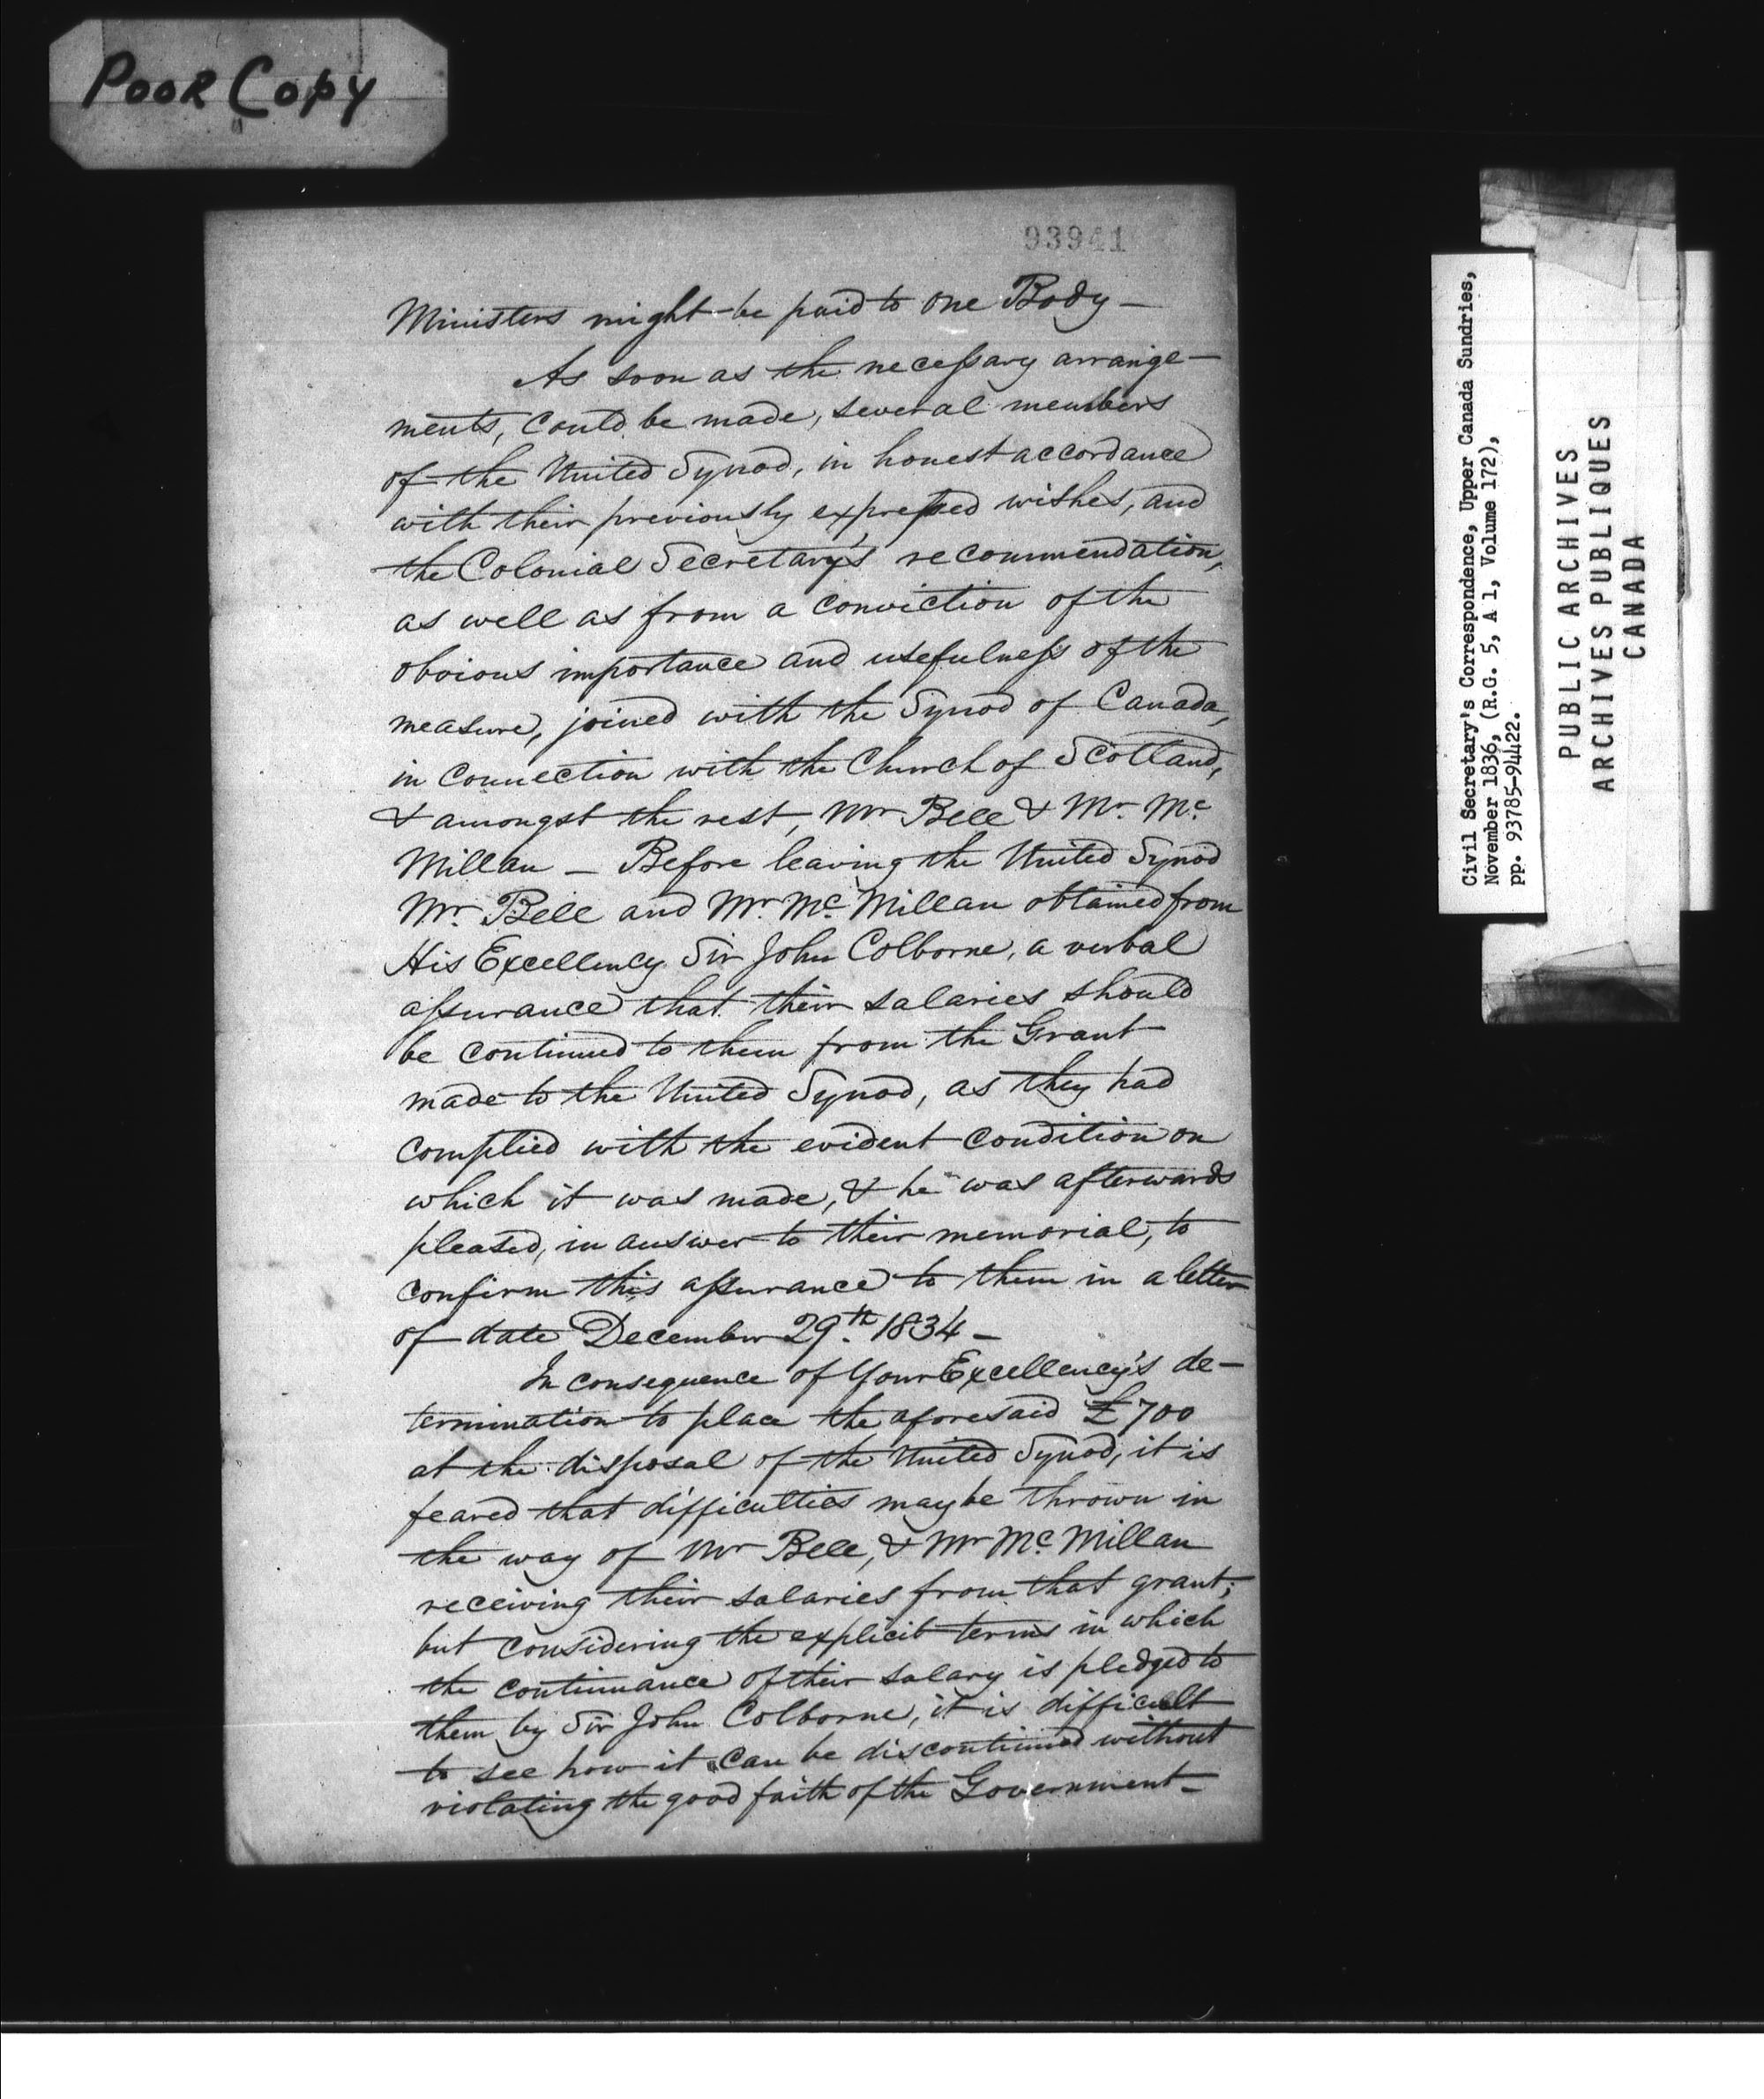 Poor Copy
93941
Ministers might be paid to one Body —
As soon as the necessary arrange-
ments, could be made, several members
of the United Synod, in honest accordance
with their previously expressed wishes, and
the Colonial Secretary's recommendation,
as well as from a conviction of the
obvious importance and usefulness of the
measure, joined with the Synod of Canada,
in connection with the Church of Scotland,
& amongst the rest, Mr Bell & Mr. Mc.
Millan — Before leaving the United Synod
Mr. Bell and Mr. Mc. Millan obtained from
His Excellency Sir John Colborne, a verbal
assurance that their salaries should
be continued to them from the Grant
made to the United Synod, as they had
complied with the evident condition on
which it was made, & he was afterwards
pleased, in answer to their memorial, to
confirm this assurance to them in a letter
of date December 29.th 1834 —
In consequence of Your Excellency's de-
termination to place the aforesaid £700
at the disposal of the United Synod, it is
feared that difficulties may be thrown in
the way of Mr Bell, & Mr Mc. Millan
receiving their salaries from that grant;
but considering the explicit terms in which
the continuance of their salary is pledged to
them by Sir John Colborne, it is difficult
to see how it can be discontinued without
violating the good faith of the Government —
Civil Secretary's Correspondence, Upper Canada Sundries,
November 1836, (R.G. 5, A 1, Volume 172),
pp. 93785-94422.
PUBLIC ARCHIVES
ARCHIVES PUBLIQUES
CANADA